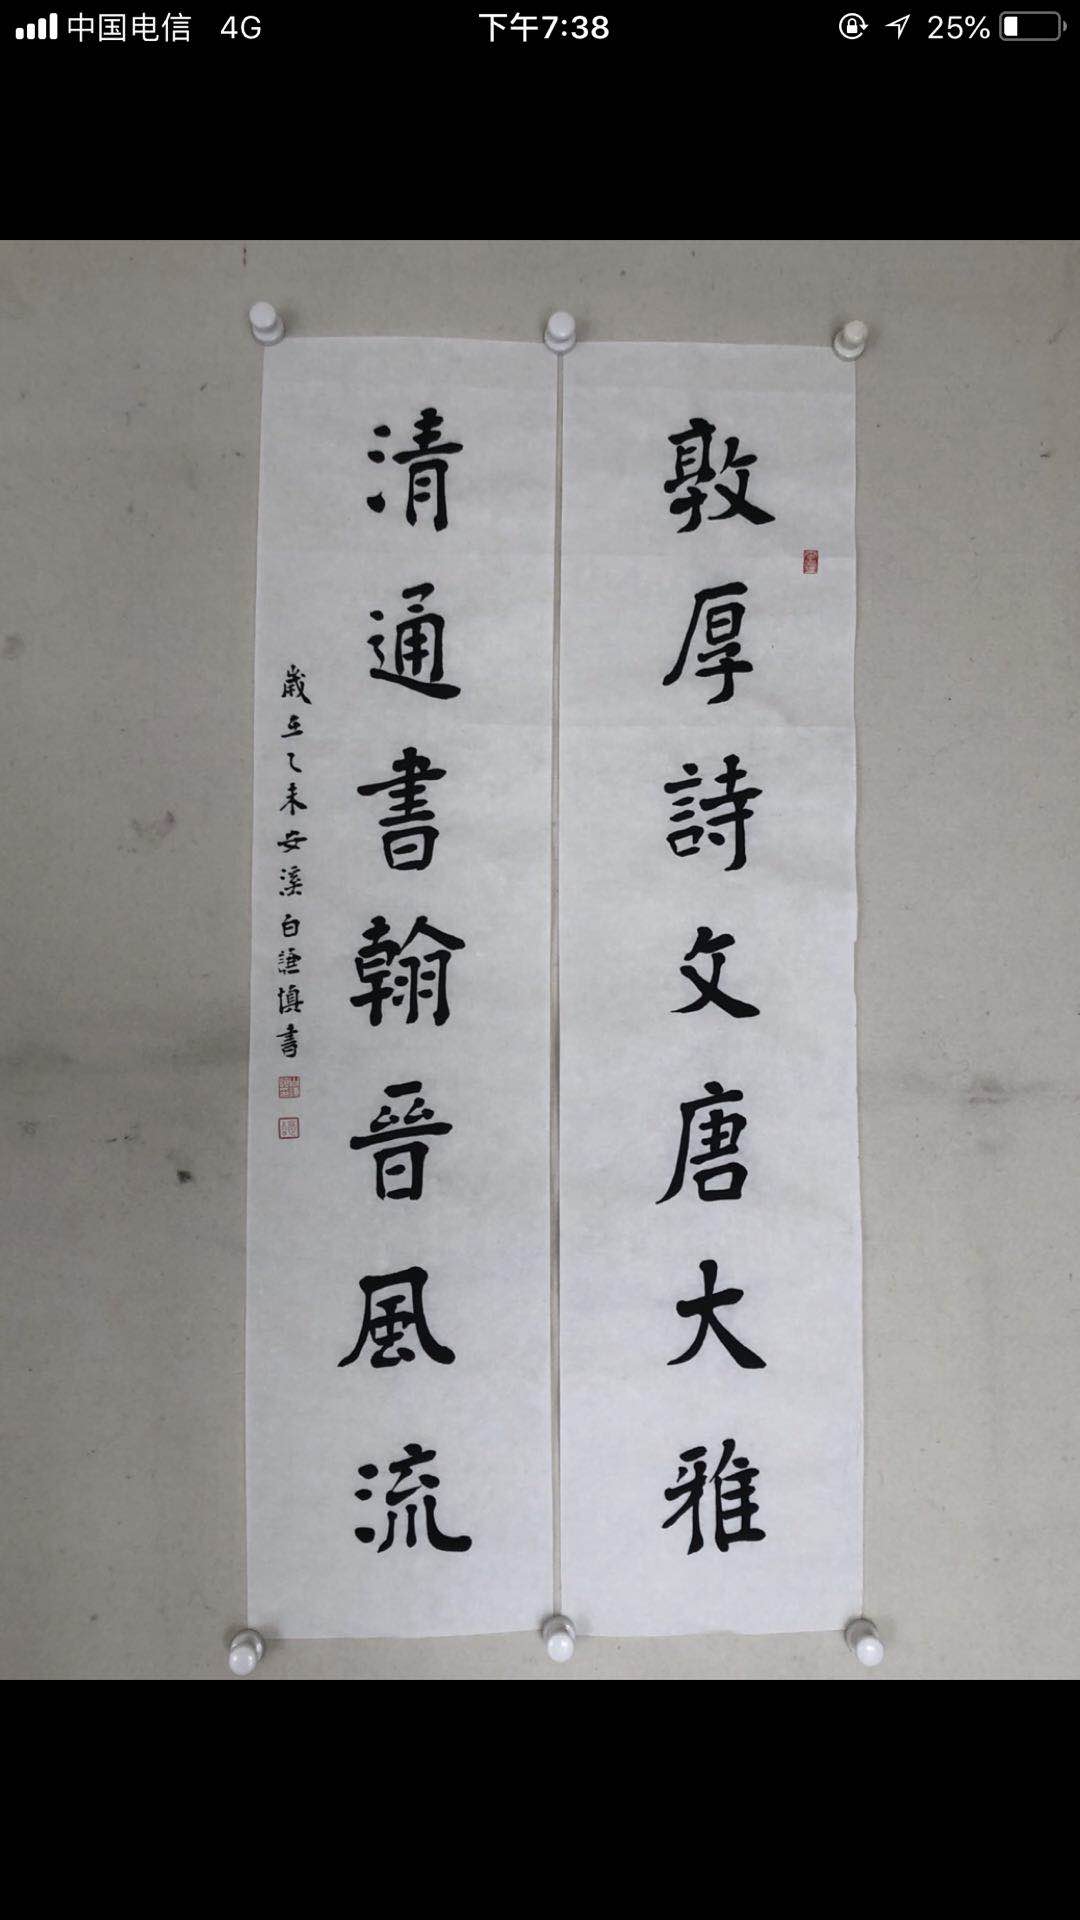 中国电信 4G 下午7:38 25%
敦厚詩文唐大雅
清通書翰晉風流
歲在乙未安溪白謙慎書